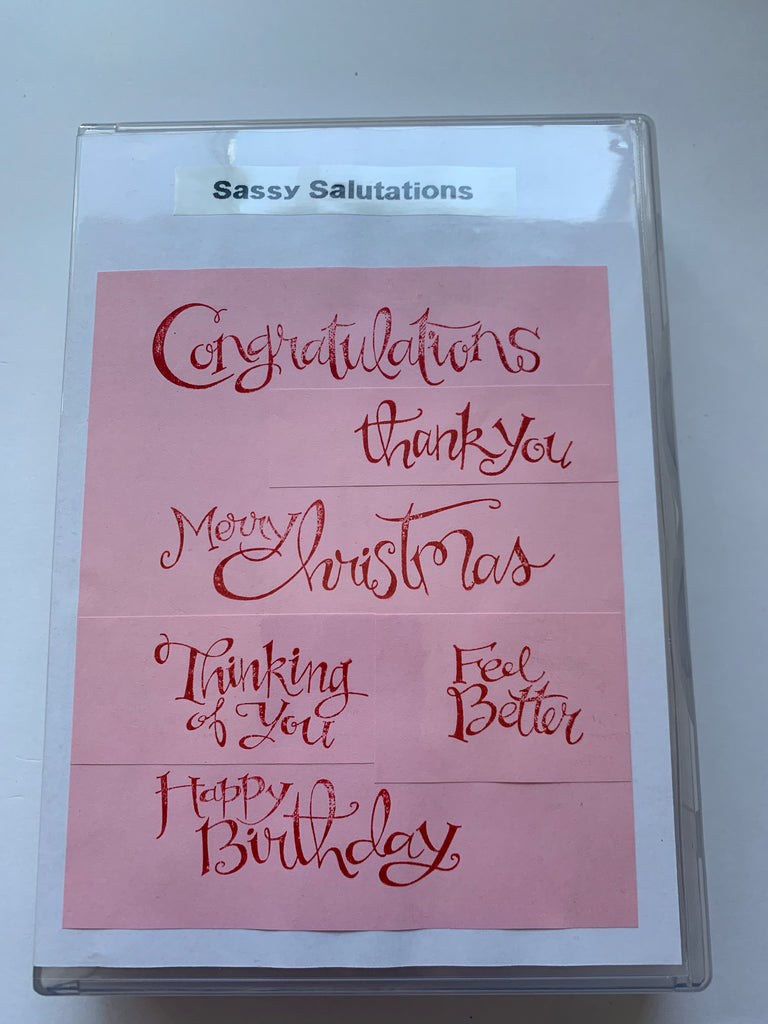 Sassy Salutations
Congratulations
thank you
Merry Christmas
Thinking
of You
Feel
Better
Happy
Birthday